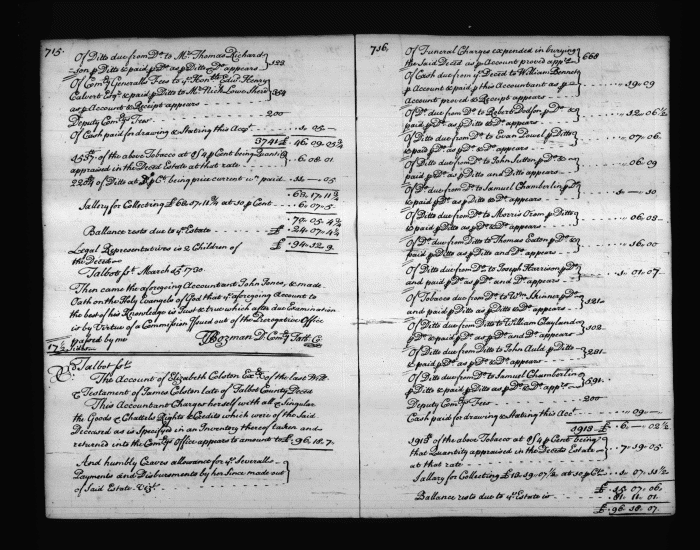 715.
Of Ditto due from Do. to Mr. Thomas Richard
son p Ditto & paid pDo. as p Ditto & Do. appears 122
Of Comy. Generalls Fees to ye Honble. Edwd. Henry
Calvert Esqr. & paid p Ditto to Mr. Nich. Lowe Sherd. 354
as p Account & Receipt appears
Deputy Comys. Fees 200
Of Cash paid for drawing & Stating this Acct. 1. 05 —
3741 £ 46. 09. 05
of the above Tobacco at 8/4 p Cent being Quantity
appraised in the Deced Estate at that rate 6. 08. 01
of Ditto at p Ct. being price current wn. paid 05
68. 17. 11
Sallery for Collecting £ 68. 07. 11 at 10 p Cent 6. 07. 5
£ 70. 05. 4
Ballance rests due to ye Estate £ 24. 07. 4
Legal Representatives is 2 Children of £ 94. 12. 9.
the Deced
Talbot ss. March 1730.
Then came the aforegoing Accountant John Jones, & made
Oath on the Holy Evangels of God that ye. aforegoing Account to
the best of his Knowledge is Just & true which after due Examination
is by Virtue of a Commission Issued out of the Prerogative Office
passed by me
T Bozman D. Comy. Talb. Co.
Talbot ss.
The Account of Elizabeth Colston Exx. of the last Will
& Testament of James Colston late of Talbot County Deced
This Accountant Charges herself with all & Singular
the Goods & Chattels Rights & Credits which were of the Said
Deceased as is Specifyed in an Inventory thereof taken and
returned into the Comys. Office appears to amount to £ 96. 18. 7.
And humbly Craves allowance for ye. Severalls
Payments and Disbursements by her Since made out
of Said Estate. Vizt.
716.
Of Funeral Charges expended in burying 668
the Said Deced as p Account proved appr.
Of Cash due from ye Deced to William Bennet
p Account & paid p this Accountant as p 19. 09
Account proved & Receipt appears
Of Do. due from Do. to Robert Dodson pDo. &
paid pDo. as p Ditto & Do. appears 12. 06½
Of Ditto due from Do. to Evan Powel p Ditto
& paid pDo. as pDo. & Do. appears 07. 06
Of Ditto due from Do. to John Sutton pDo. &
paid pDo. as p Ditto and Ditto appears 06. 09
Of Do. due from Do. to Samuel Chamberlin pDo.
& paid pDo. as pDo. & Do. appears 1. — . 10
Of Ditto due from Do. to Morris Orem p Ditto
& paid pDo. as pDo. & Do. appears 06. 08
Of Do. due from Ditto to Thomas Eaton pDo. &
paid p Ditto as p Ditto and Do. appears 16. 00
Of Ditto due from Do. to Joseph Harrison pDo.
and paid pDo. as pDo. and Do. appears 1. 01. 07
Of Tobacco due from Do. to Wm. Skinner pDo. 121
and paid pDo. as p Ditto & Do. appears
Of Ditto due from Ditto to William Clayland 102
p Ditto & paid pDo. as pDo. and Do. appears
Of Ditto due from Ditto to John Auld p Ditto 281
and paid pDo. as pDo. & Do. appears
Of Ditto due from Do. to Samuel Chamberlin 591
p Ditto & paid p Ditto as pDo. & Do. app.
Deputy Comys. Fees 200
Cash paid for drawing & Stating this Acct. 09
1913 £ 6. — 02½
of the above Tobacco at 8/4 p Cent being
that Quantity appraised in the Deced Estate 7. 19. 05
at that rate
Sallary for Collecting £ 13. 19. 07½ at 10 p Ct. 1. 07. 11½
£ 15. 07. 06
Ballance rests due to ye Estate is 81. 11. 01
£ 96. 18. 07